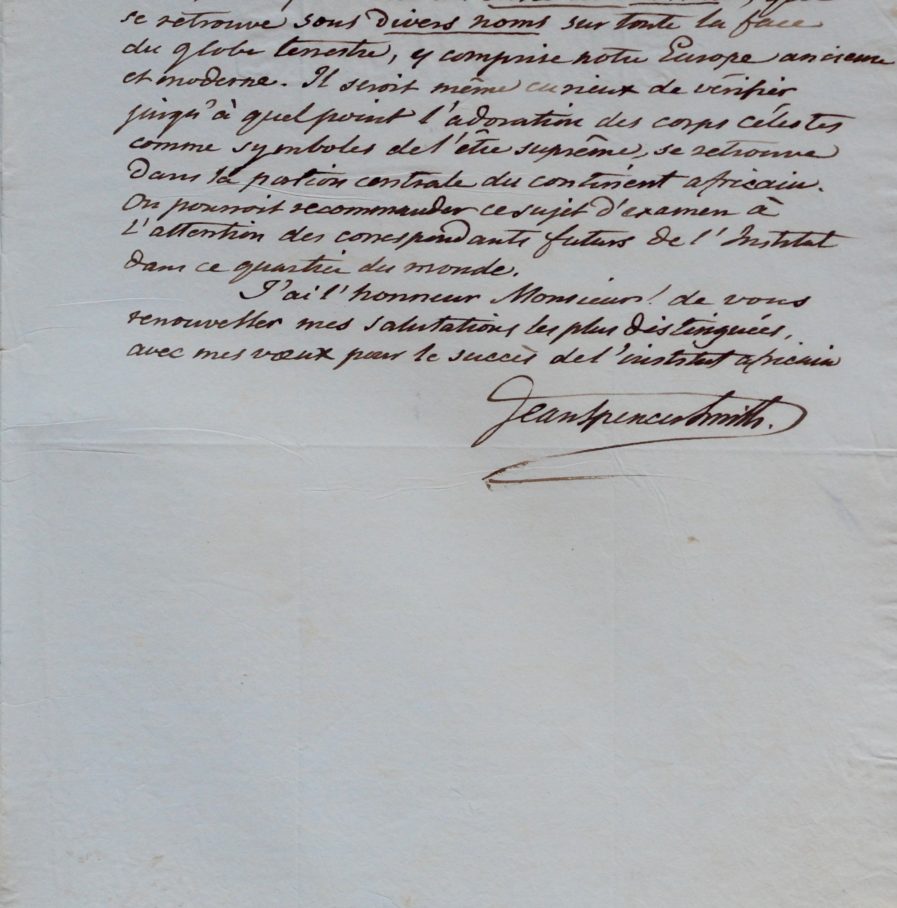 se retrouve sous divers noms sur toute la face
du globe terrestre, y comprise notre Europe ancienne
et moderne. Il seroit même curieux de vérifier
jusqu'à quel point l'adoration des corps célestes
comme symboles de l'être suprême, se retrouve
dans la portion centrale du continent africain.
On pourroit recommander ce sujet d'examen à
l'attention des correspondants futurs de l'Institut
dans ce quartier du monde.
J'ai l'honneur Monsieur! de vous
renouveller mes salutations les plus distinguées,
avec mes vœux pour le succès de l'institut africain
Jean Spencer Smith.